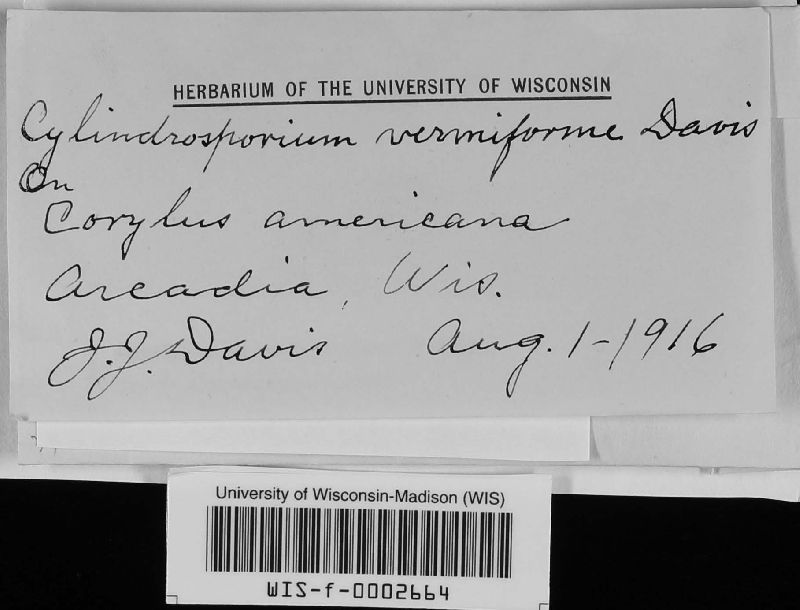 HERBARIUM OF THE UNIVERSITY OF WISCONSIN
Cylindrosporium vermiforme Davis
On
Corylus americana
Arcadia, Wis.
J. J. Davis Aug. 1-1916
University of Wisconsin-Madison (WIS)
WIS-f-0002664